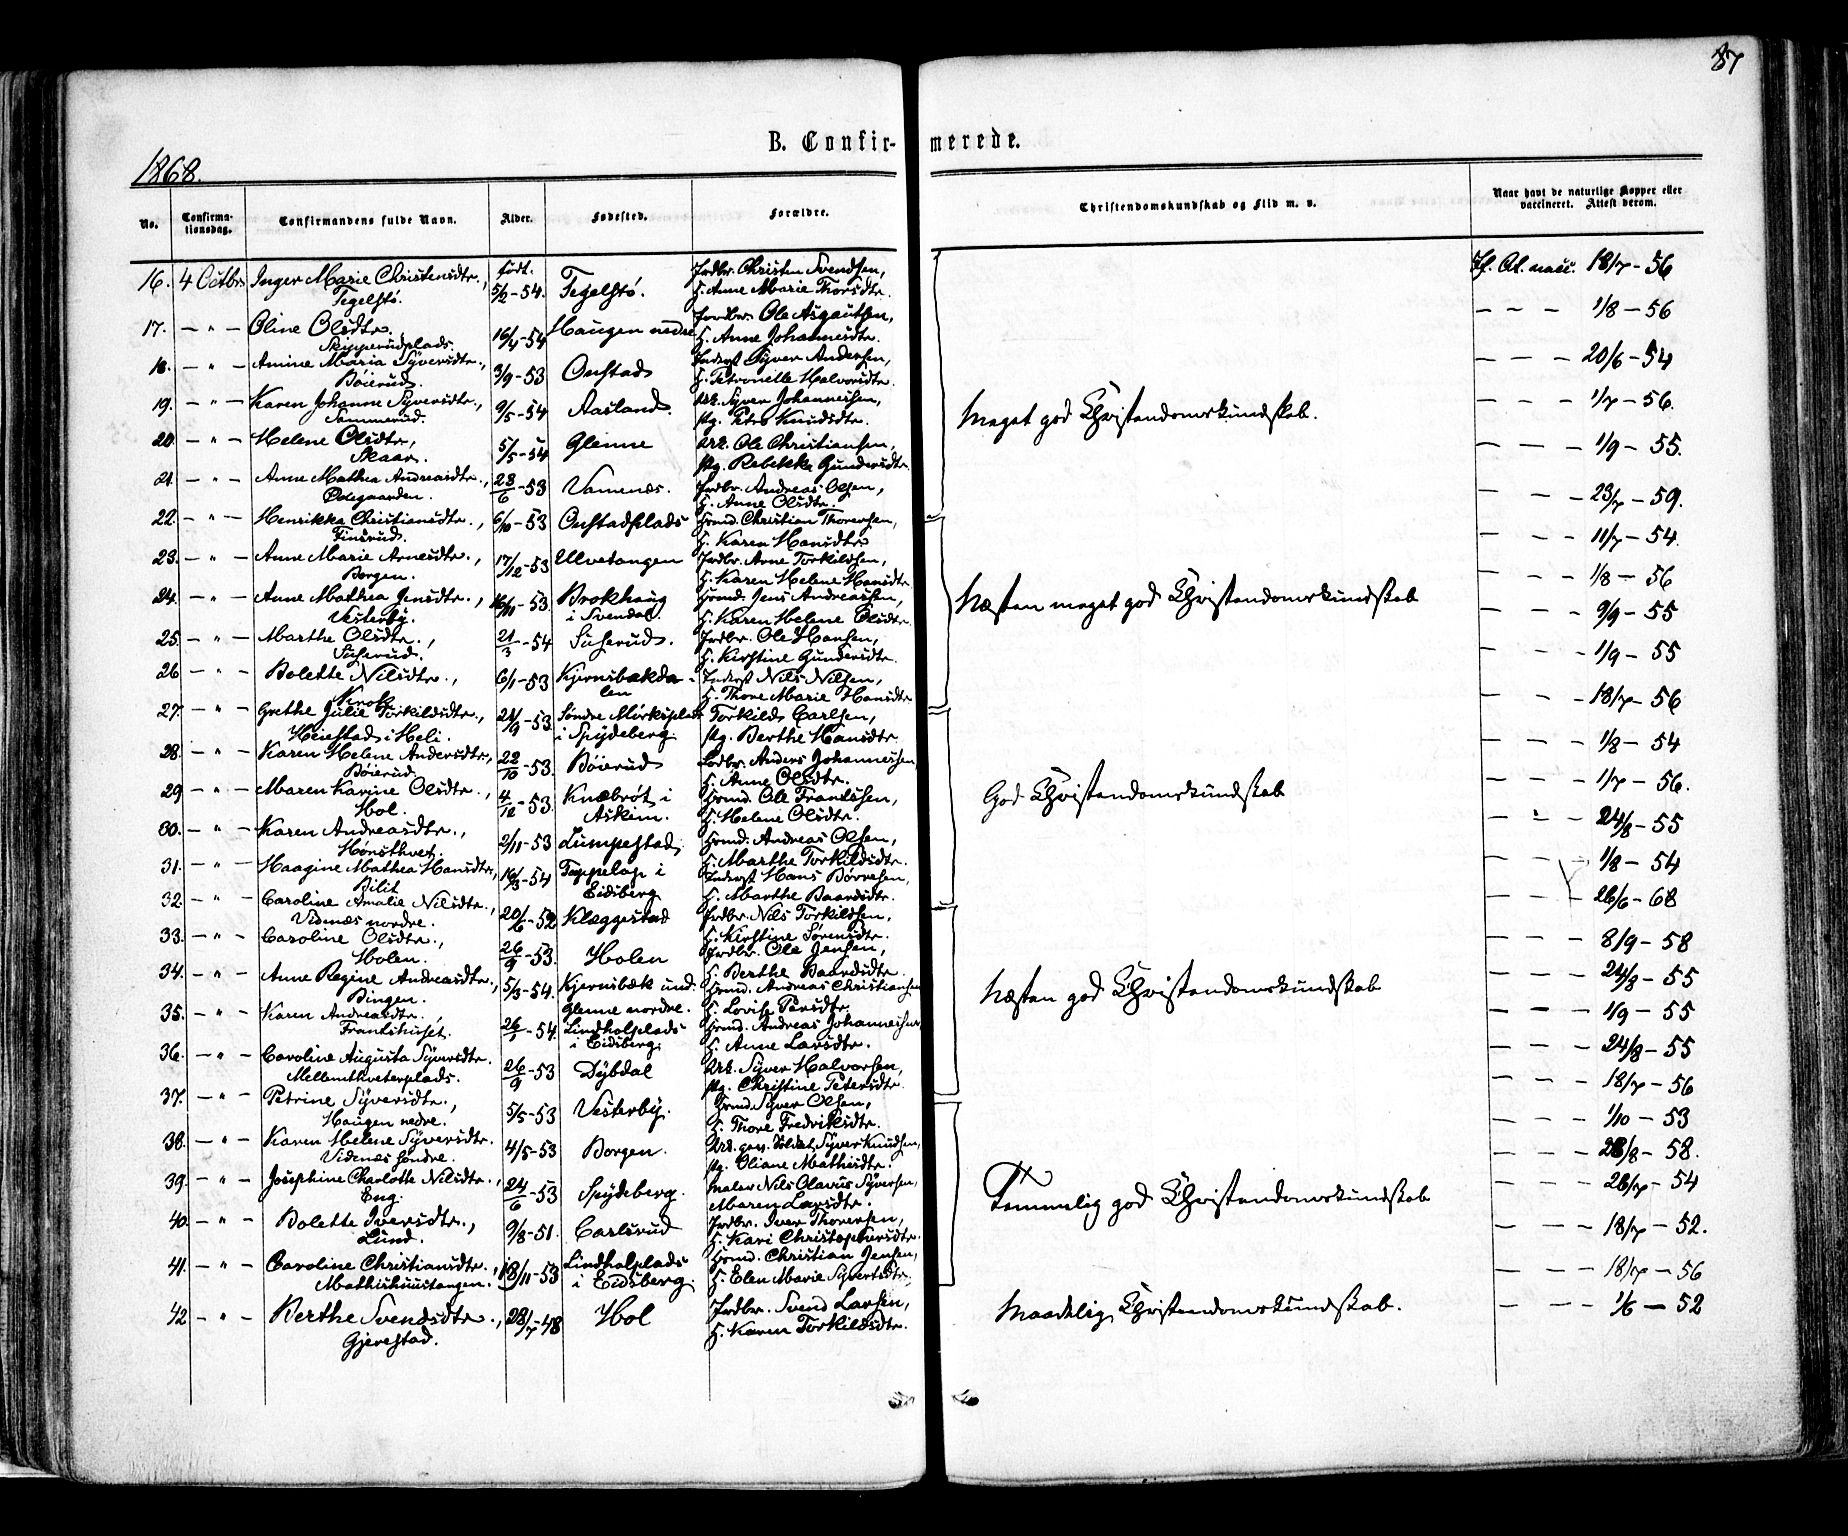 87
B. Confir- merede.
1868.
No. Confirma-tionsdag. Confirmandens fulde Navn. Alder. Fødested. Forældre. Christendomskundskab og Flid m. v. Naar havt de naturlige Kopper eller vaccineret. Attest derom.
født.
16. 4 Octbr. Inger Marie Christensdtr., 5/2-54. Tegelstø. Jrdbr. Christen Svendsen, 18/7-56
Tegelstø. H. Anne Marie Thorsdtr.
17. — " — Oline Olsdtr., 16/4-54 Haugen nedre Jordbr. Ole Asgautsen, — — — 1/8-56
Skipperudplads. H. Anne Johannesdtr.
18. — " — Amine Maria Syversdtr., 3/9-53 Onstad Inderst Syver Andersen, — — — 20/6-54
Bøierud. H. Petronelle Halvorsdtr.
19. — " — Karen Johanne Syversdtr., 9/5-54 Aasland. Ark. Syver Johannesen, Meget god Christendomskundskab. — — — 1/7-56.
Sommerud. Pg. Petra Knudsdtr.
20. — " — Helene Olsdtr., 5/5-54 Glenne Ark. Ole Christiansen, — — — 1/9-55.
Skaar. Pg. Rebekka Gundersdtr.
21. — " — Anne Mathea Andreasdtr., 23/6-53 Vamenæs. Jrdbr. Andreas Olsen, — — — 23/7-59.
Ødegaarden. H. Anne Olsdtr.
22. — " — Henrikka Christiansdtr., 6/10-53 Onstadplads Hrmd. Christian Thoresen, — — — 11/7-54
Finsrud. H. Karen Hansdtr
23. — " — Anne Marie Arnesdtr., 17/12-53 Ulvetangen Jrdbr. Arne Torkildsen, — — — 1/8-56
Borgen. H. Karen Helene Hansdtr
24. — " — Anne Mathea Jensdtr., 16/11-53 Brokhaug Hrmd. Jens Andreassen, Næsten meget god Christendomskundskab — — — 9/9-55
Vesterby. i Svendal. H. Karen Helene Olsdtr.
25. — " — Marthe Olsdtr., 21/3-54 Suserud. Jrdbr. Ole Hansen, — — — 1/9-55
Suserud. H. Kirstine Gundersdtr.
26 — " — Bolette Nilsdtr., 6/1-53 Kjernsbækda- Inderst Nils Nilsen, — — — 18/7-56
Krok. len H. Thore Marie Hansdtr
27. — " — Grethe Julie Torkildsdtr., 24/9-53 Søndre Mørksplads Torkild Carlsen, — — — 1/8-54
Heiestad i Heli. i Spydeberg. Pg. Berthe Hansdtr
28. — " — Karen Helene Andersdtr., 22/10-53. Bøierud Lodbr. Anders Johannessen, — — — 1/7-56.
Bøierud H. Anne Olsdtr.
29 — " — Maren Karine Olsdtr., 4/12-53. Knæbrøt i Hrmd. Ole Frantssen, God Christendomskundskab — " — 24/8-55
Hol. Askim. H. Helene Olsdtr.
30. — " — Karen Andreasdtr., 2/11-53 Lumpestad Hrmd. Andreas Olsen, — — — 1/8-54
Hønsthvet. H. Marthe Torkildsdtr.
31. — " — Haagine Mathea Hansdtr., 16/3-54 Tappelap i Inderst Hans Børresen, — — — 26/6-68
Bilit Eidsberg H. Marthe Baardsdtr.
32. — " — Caroline Amalie Nilsdtr., 20/6-52 Klæggestad Jrdbr. Nils Torkildsen, — — — 8/9-58
Vidnæs nordre. H. Kirstine Sørensdtr.
33. — " — Caroline Olsdtr., 26/9-53. Holen Jrdbr. Ole Jensen, — — — 24/8-55
Holen. H. Berthe Baardsdtr
34. — " — Anne Regine Andreasdtr., 5/3-54. Kjernsbæk und. Hrmd. Andreas Christiansen Næsten god Christendomskundskab — — — 1/9-55
Bingen. Glenne nordre. H. Lovise Persdtr
35. — " — Karen Andreasdtr., -54. Lindholplads Hrmd. Andreas Johannesen — — — 24/8-55
Frantshuset. i Eidsberg. H. Anne Larsdtr.
36. — " — Caroline Augusta Syversdtr. 26/9-53 Dybdal Ark. Syver Halvorsen, — — — 18/7-56
Mellemthveterplads. Pg. Christine Petersdtr
37. — " — Petrine Syversdtr., 5/5-53 Vesterby. Hrmd. Syver Olsen, — — — 1/10-53
Haugen nedre. H. Thore Fredriksdtr.
38. — " — Karen Helene Syversdtr. 4/5-53 Borgen. Ark. gev. Soldat Syver Knudsen, — — — 28/8-58.
Vidnæs søndre. Pg. Oliane Mathisdtr.
39. — " — Josephine Charlotte Nilsdtr., 24/6-53 Spydeberg. Maler Nils Olavus Syversen, Temmelig god Christendomskundskab — — — 26/7-54
Eng. Maren Larsdtr.
40. — " — Bolette Iversdtr., 9/8-51. Carlsrud Jrdbr. Iver Thoresen, — — — 18/7-52.
Lund. H. Kari Christophersdtr.
41. — " — Caroline Christiansdtr., 18/11-53 Lindholplads Hrmd. Christian Jensen, — — — 18/7-56
Mathishuustangen. i Eidsberg. H. Elen Marie Syvertsdtr.
42 — " — Berthe Svendsdtr., 28/7-48 Hol Jrdbr. Svend Larsen, Maadelig Christendomskundskab. — — — 1/6-52
Gjerestad. H. Karen Torkildsdtr.